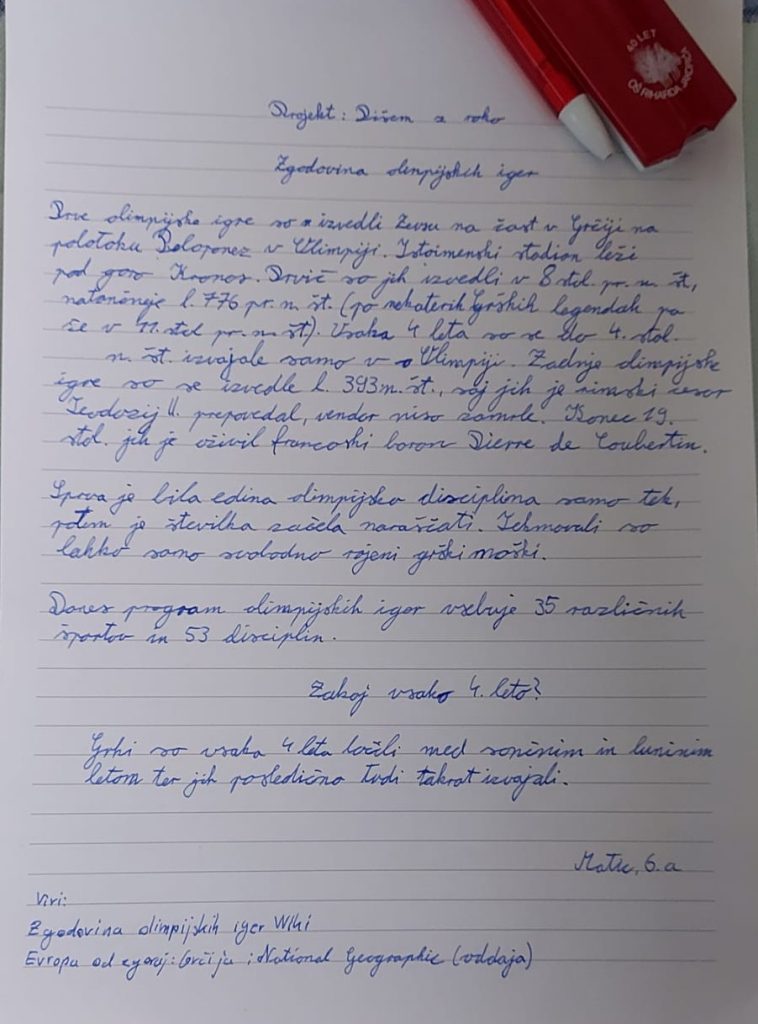 40 LET
OŠ RIHARDA JAKOPIČA
Projekt: Pišem z roko
Zgodovina olimpijskih iger
Prve olimpijske igre so izvedli Zevsu na čast v Grčiji na
polotoku Peloponez v Olimpiji. Istoimenski stadion leži
pod goro Kronos. Prvič so jih izvedli v 8 stol. pr. n. št,
natančneje l. 776 pr. n. št. (po nekaterih grških legendah pa
že v 11. stol pr. n. št). Vsaka 4 leta so se do 4. stol.
n. št. izvajale samo v Olimpiji. Zadnje olimpijske
igre so se izvedle l. 393 n. št., saj jih je rimski cesar
Teodozij II. prepovedal, vendar niso zamrle. Konec 19.
stol. jih je oživil francoski baron Pierre de Coubertin.
Sprva je bila edina olimpijska disciplima samo tek,
potem je številka začela naraščati. Tekmovali so
lahko samo svobodno rojeni grški moški.
Danes program olimpijskih iger vsebuje 35 različnih
športov in 53 disciplin.
Zakaj vsako 4. leto?
Grki so vsaka 4 leta ločili med sončnim in luninim
letom ter jih posledično tudi takrat izvajali.
Matic, 6. a
Viri:
Zgodovina olimpijskih iger Wiki
Evropa od zgoraj: Grčija ; National Geographic (oddaja)